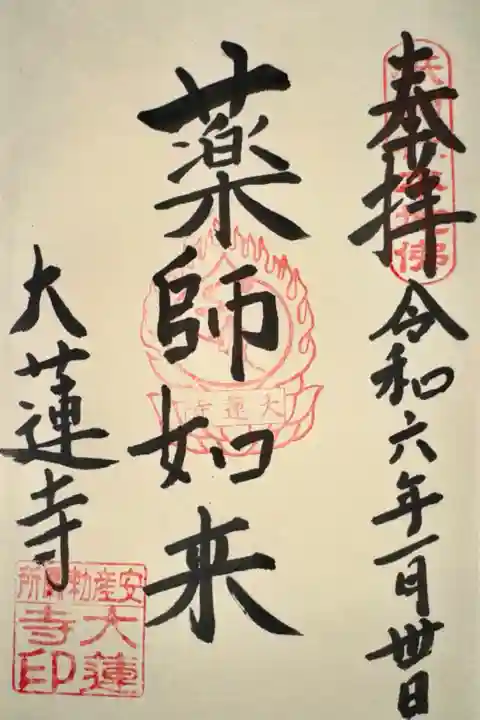 奉拝
令和六年一月丗日
薬師如来
大蓮寺
大蓮寺
安産勅願所
大蓮寺印